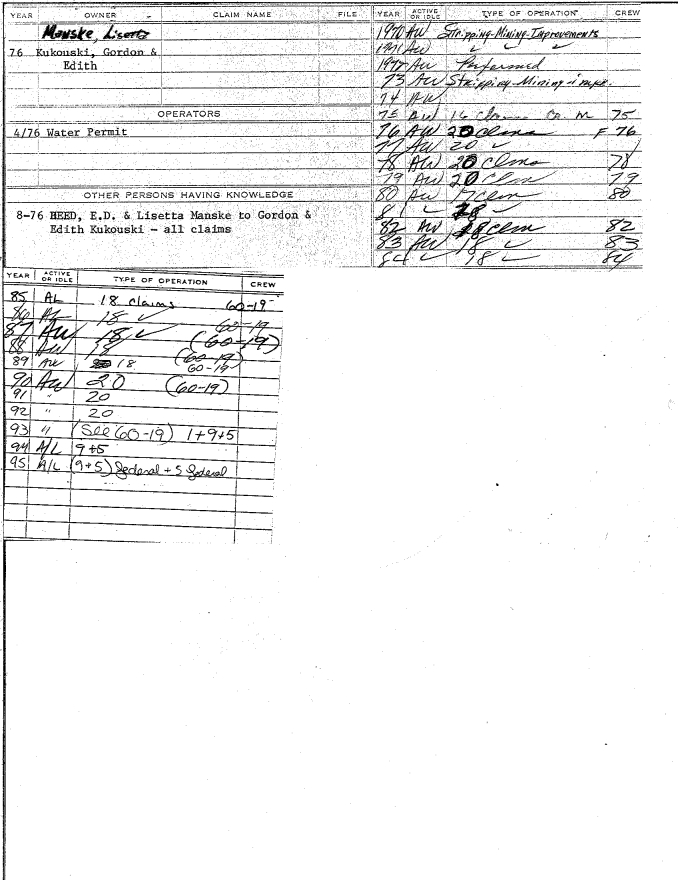 YEAR OWNER CLAIM NAME FILE
Manske, Lisetta
76 Kukouski, Gordon &
Edith
OPERATORS
4/76 Water Permit
OTHER PERSONS HAVING KNOWLEDGE
8-76 HEED, E.D. & Lisetta Manske to Gordon &
Edith Kukouski - all claims
YEAR ACTIVE OR IDLE TYPE OF OPERATION CREW
1970 AW Stripping-Mining-Improvements
1971 AW ✓ ✓ ✓
1972 AW Performed
73 AW Stripping Mining
74 AW
75 AW 16 75
76 AW 20 Clms F 76
77 AW 20 ✓
78 AW 20 Clms 78
79 AW 20 Clm 79
80 AW 17 Clm 80
81 ✓ 18 ✓
82 AW 18 Clm 82
83 AW 18 ✓ 83
84 ✓ 18 ✓ 84
YEAR ACTIVE OR IDLE TYPE OF OPERATION CREW
85 AL 18 claims 60-19
86 AL 18 ✓ 60-19
87 AW 18 ✓ (60-19)
88 AW 18 (60-19)
89 AW 18 60-19
90 AW 20 (60-19)
91 " 20
92 " 20
93 " (See 60-19) 1+9+5
94 A/L 9+5
95 A/L (9+5) federal + 5 federal